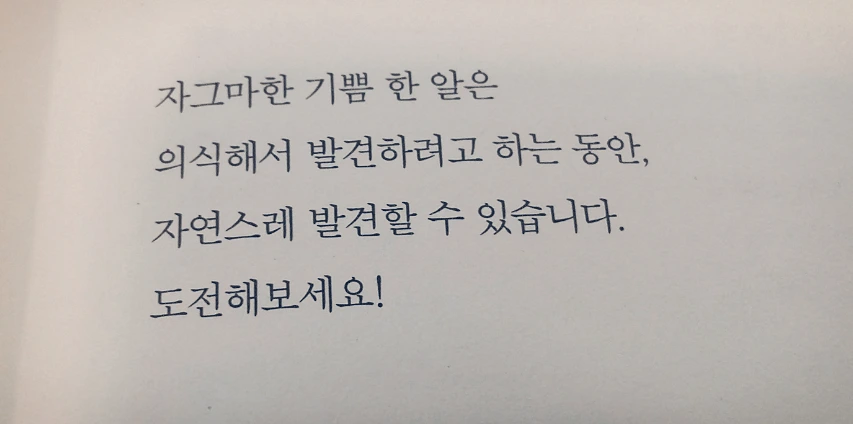 자그마한 기쁨 한 알은
의식해서 발견하려고 하는 동안,
자연스레 발견할 수 있습니다.
도전해보세요!